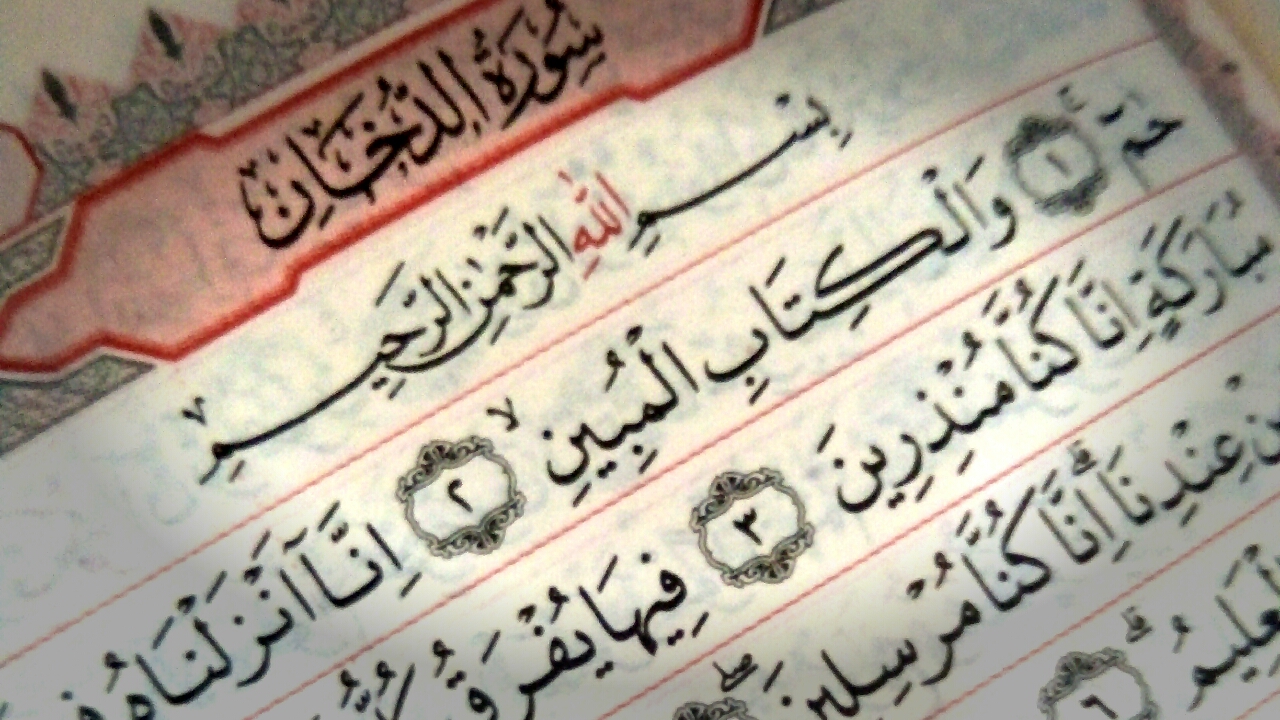 سُورَةُ الدُّخَانِ
بِسْمِ اللّٰهِ الرَّحْمٰنِ الرَّحِيمِ
حٰمٓ ﴿١﴾ وَالْكِتَابِ الْمُبِينِۙ ﴿٢﴾ اِنَّٓا اَنْزَلْنَاهُ
مُبَارَكَةٍ اِنَّا كُنَّا مُنْذِرِينَ ﴿٣﴾ فِيهَا يُفْرَقُ كُلُّ
مِنْ عِنْدِنَاۜ اِنَّا كُنَّا مُرْسِلِينَۚ
الْعَلِيمُۙ ﴿٦﴾